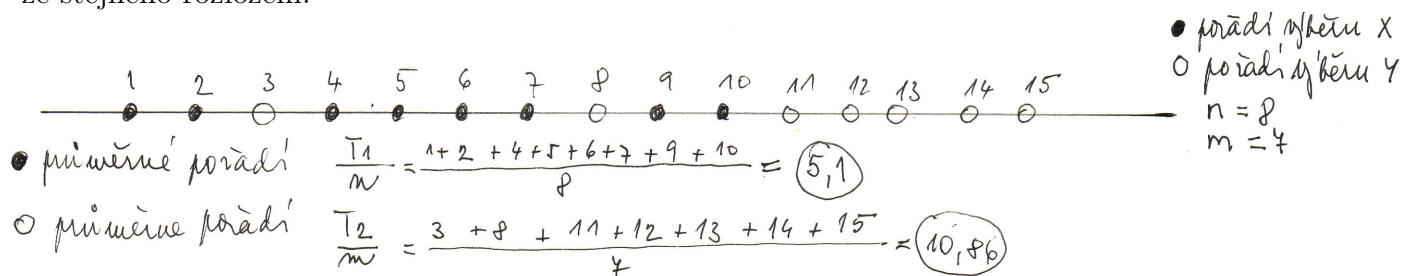 ze stejného rozložení.
● pořadí výběru X
○ pořadí výběru Y
n = 8
m = 7
1 2 3 4 5 6 7 8 9 10 11 12 13 14 15
● průměrné pořadí T1/n = (1+2+4+5+6+7+9+10)/8 = 5,1
○ průměrne pořadí T2/m = (3+8+11+12+13+14+15)/7 = 10,86